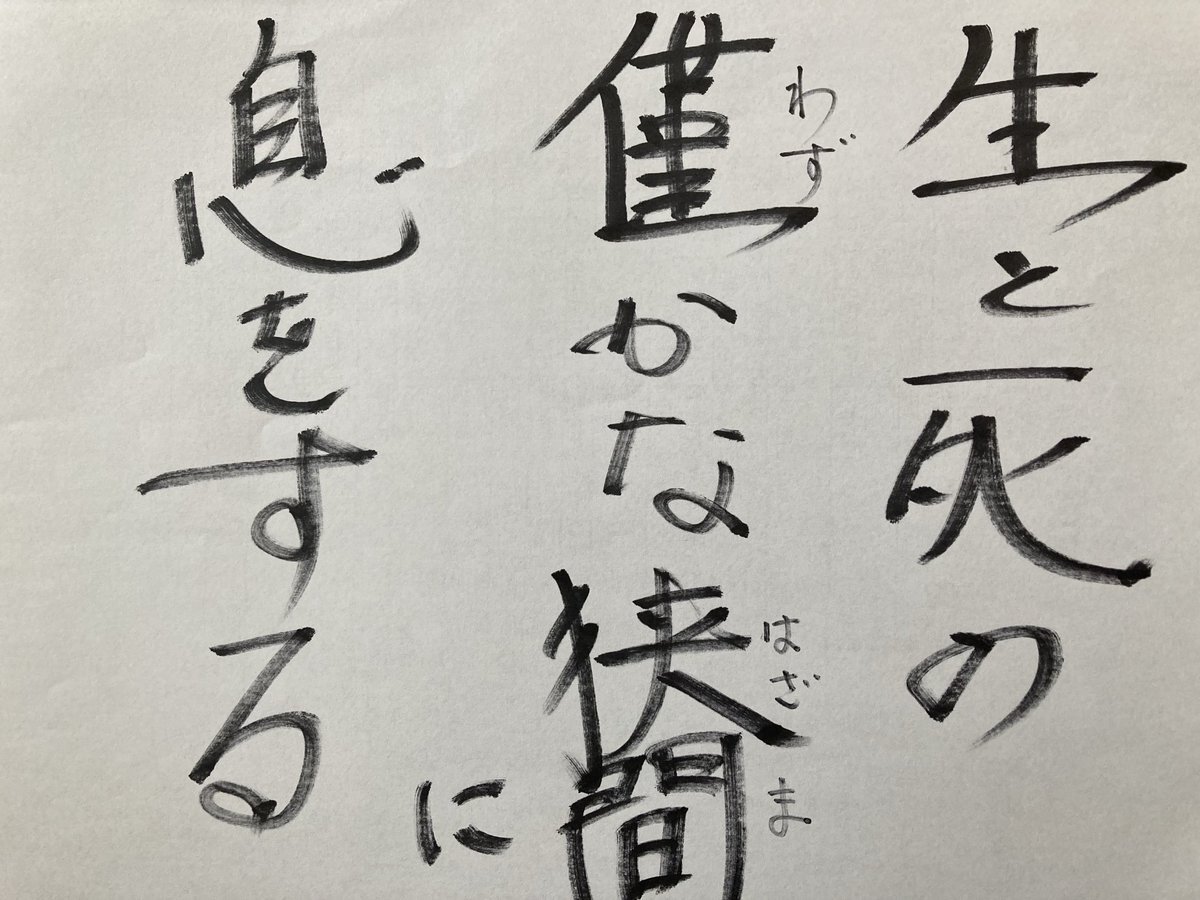 生と死の
わず
僅かな狭間に
はざま
息をする